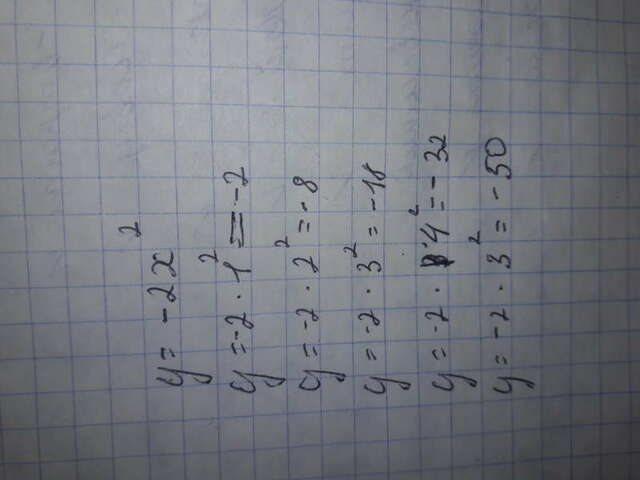 y = -2x²
y = -2 · 1² = -2
y = -2 · 2² = -8
y = -2 · 3² = -18
y = -2 · 4² = -32
y = -2 · 3² = -50